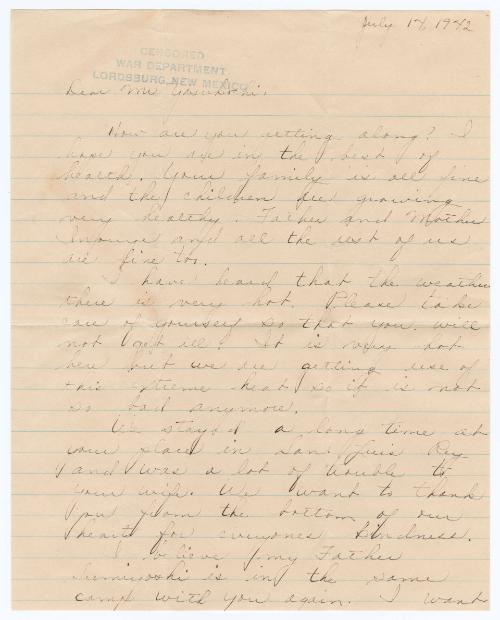 July 14, 1942
CENSORED
WAR DEPARTMENT
LORDSBURG, NEW MEXICO
Dear Mr.
How are you getting along? I
hope you are in the best of
health. Your family is all fine
and the children are growing
very healthy. Father and Mother
Inouye and all the rest of us
are fine too.
I have heard that the weather
there is very hot. Please take
care of yourself so that you will
not get ill! It is very hot
here but we are getting use of
this extreme heat so it is not
so bad anymore.
We stayed a long time at
your place in San Luis Rey
and was a lot of trouble to
your wife. We want to thank
you from the bottom of our
heart for everyones kindness.
I believe my Father
Sumiyoshi is in the same
camp with you again. I want